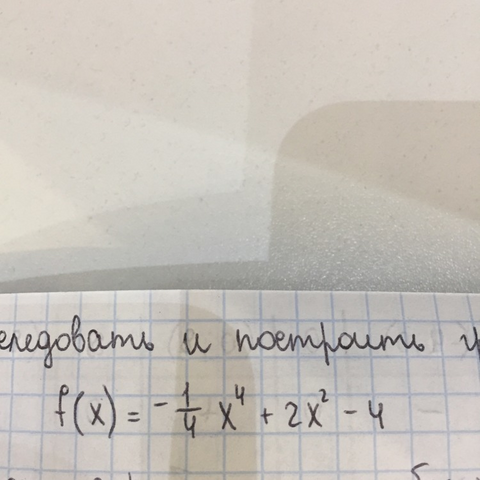 следовать и построить
f(x) = -1/4 x⁴ + 2x² - 4